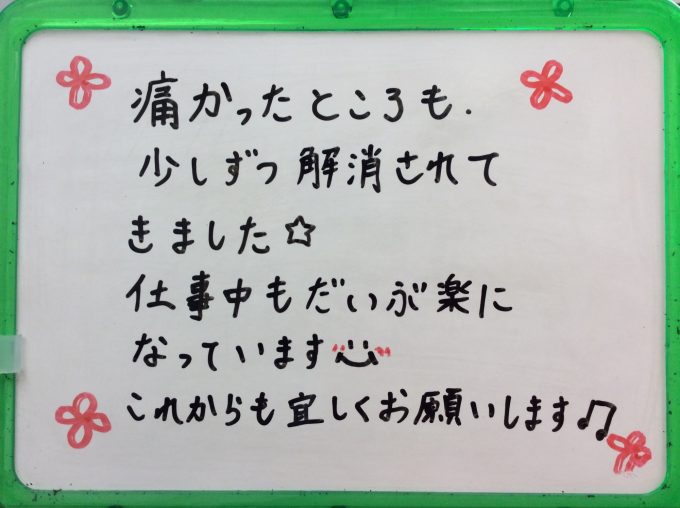 痛かったところも.
少しずつ解消されて
きました☆
仕事中もだいぶ楽に
なっています
これからも宜しくお願いします♫